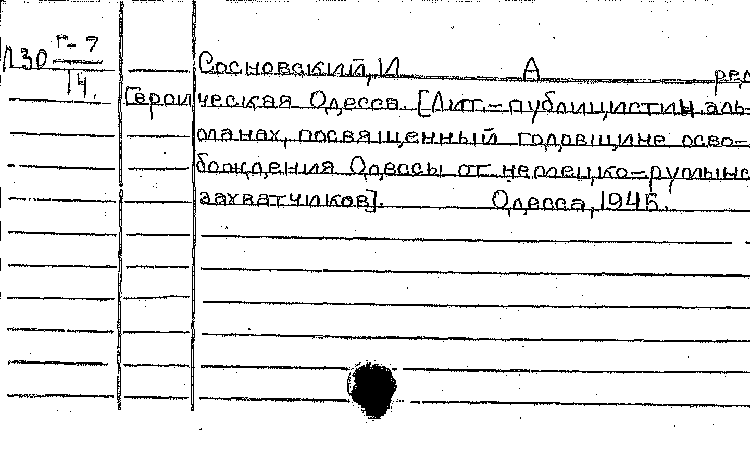 Г-7
Л30
14.
Сосновский, И А ред
Героическая Одесса. [Лит.-публицистич. аль-
манах, посвященный годовщине осво-
бождения Одессы от немецко-румынс
захватчиков]. Одесса, 1945.